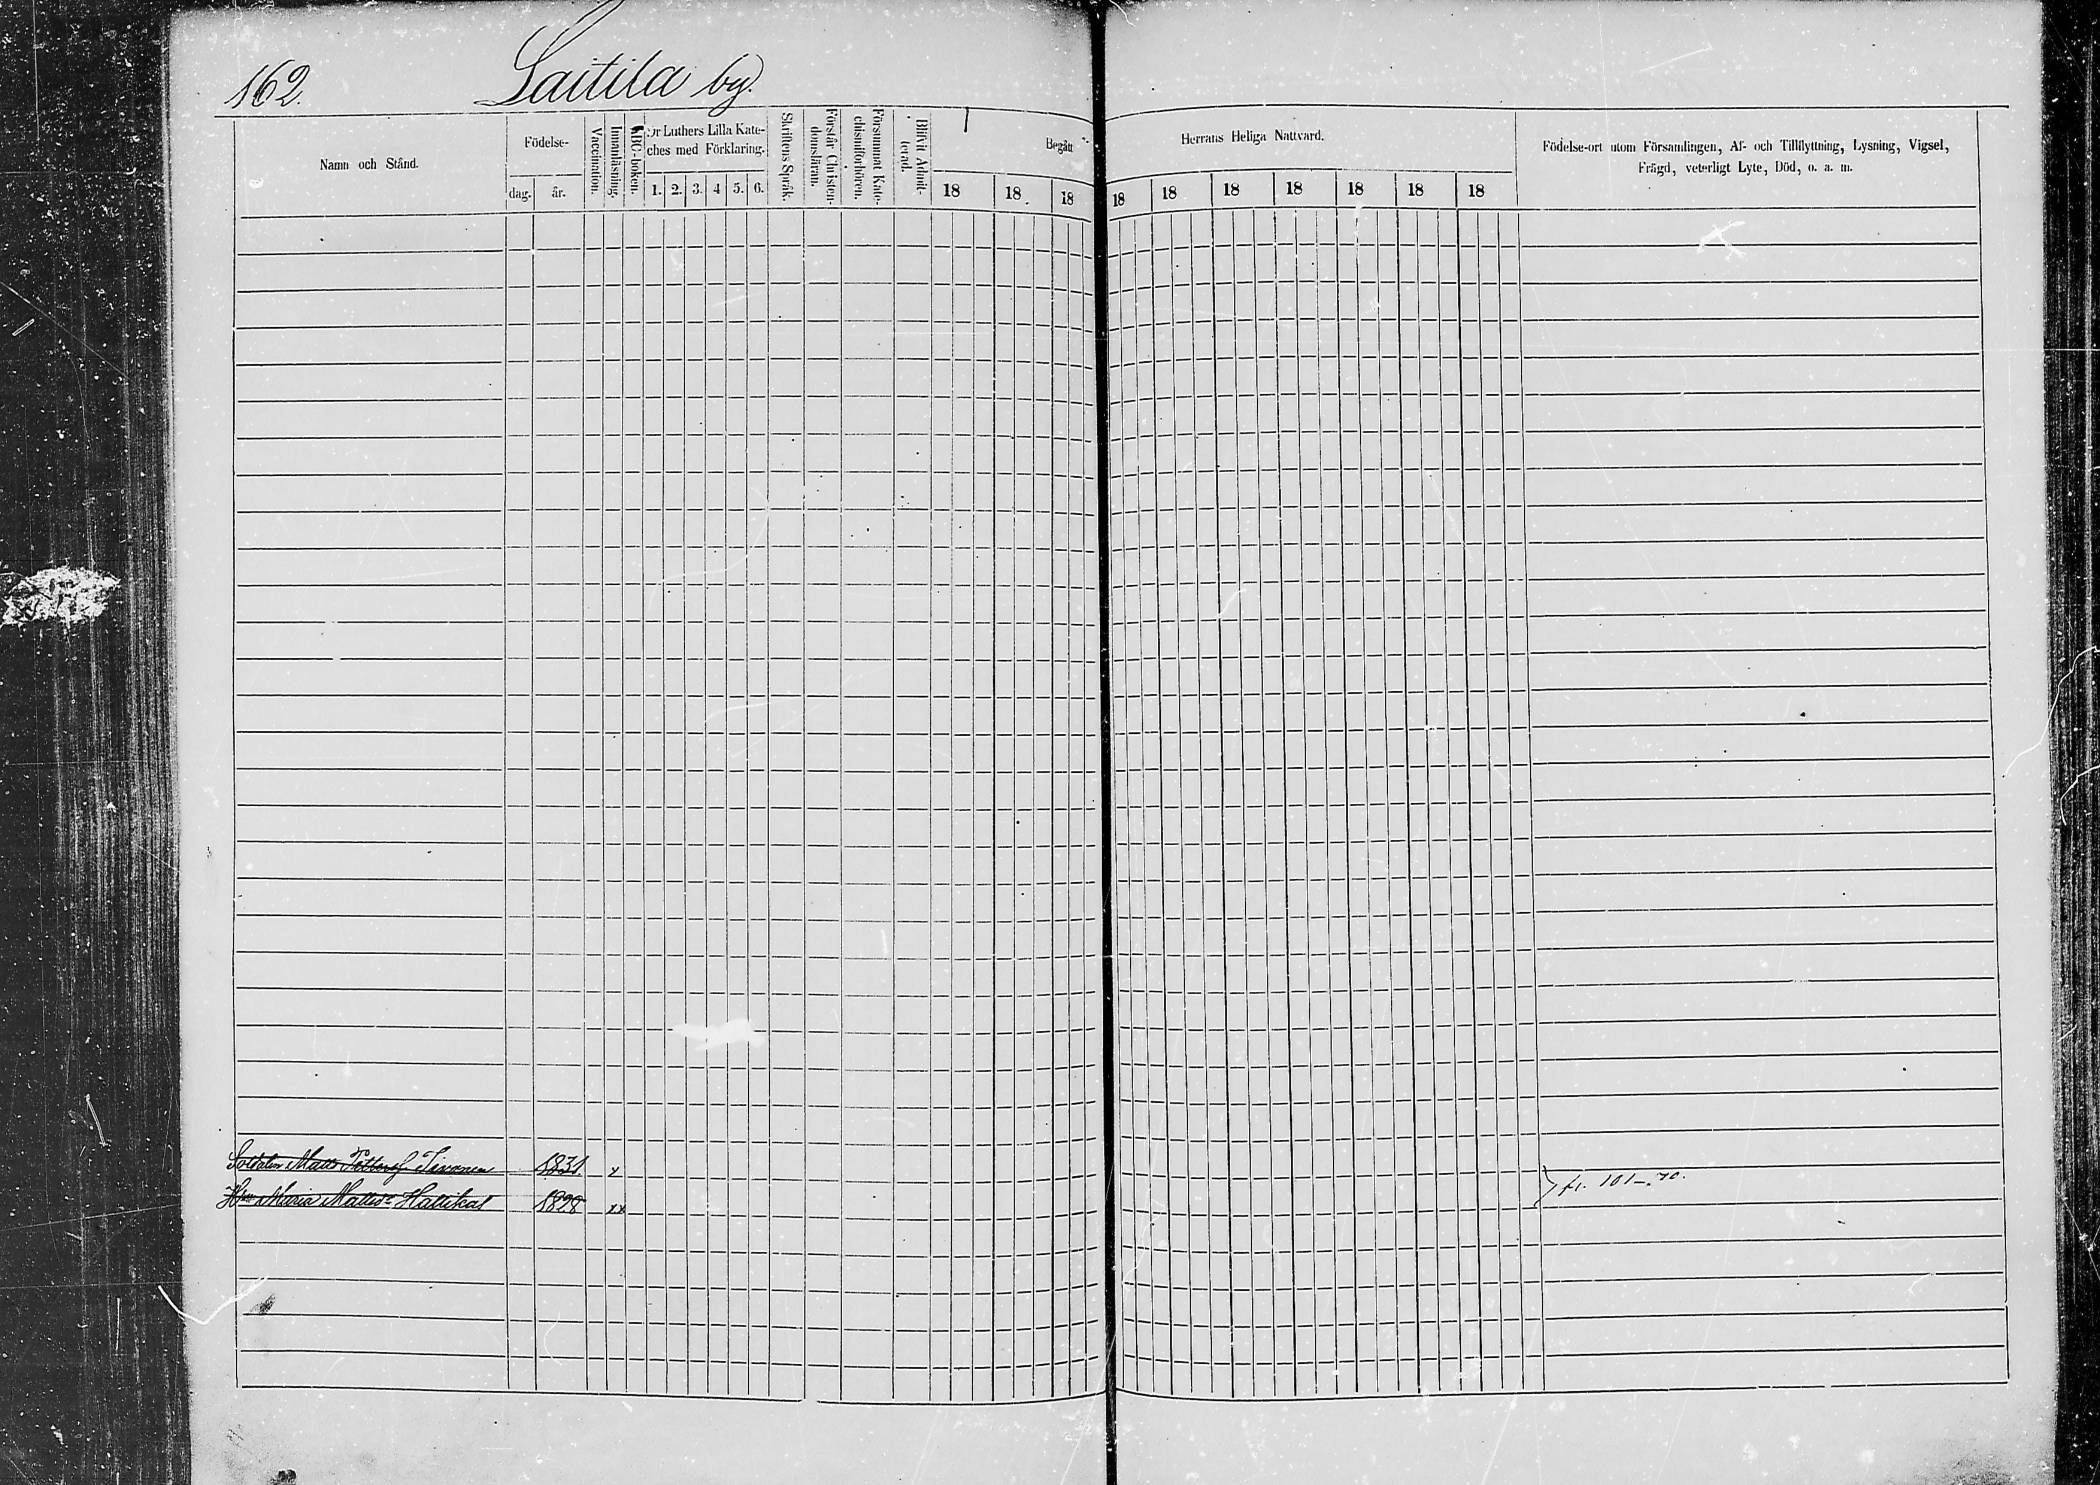 162. Laitila by.
Namn och Stånd.
Födelse-
dag. år.
Vaccination.
Innanläsning.
ABC-boken.
Dr Luthers Lilla Kate-
ches med Förklaring.
1. 2. 3. 4 5. 6.
Skriftens Språk.
Förstår Christen-
domsläran.
Försummat Kate-
chismiförhören.
Blifvit Admit-
terad.
Begått Herrans Heliga Nattvard.
18 18 18 18 18 18 18 18 18 18
Födelse-ort utom Församlingen, Af- och Tillflyttning, Lysning, Vigsel,
Frägd, veterligt Lyte, Död, o. a. m.
Soldaten Matts 1831 x
Hu Maria Mattsdr 1828 xx
101-70.